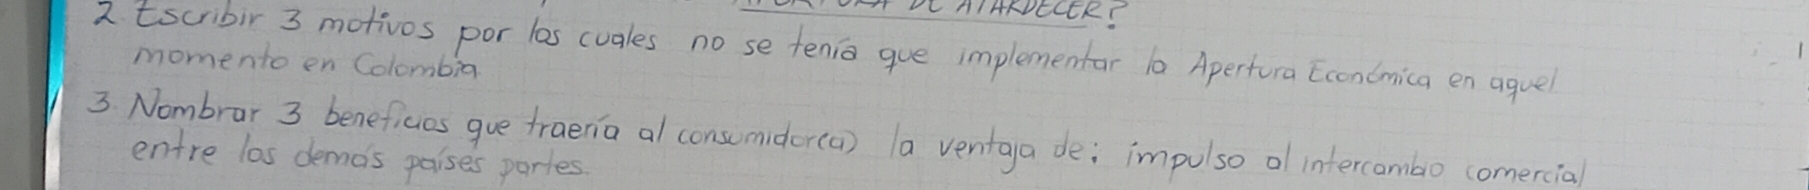 DE ATARDECER?
2 Escribir 3 motivos por los cuales no se tenía que implementar la Apertura Económica en aquel
momento en Colombia
3. Nombrar 3 beneficios que traería al consumidor(a) la ventaja de: impulso al intercambio comercial
entre los demás países partes.